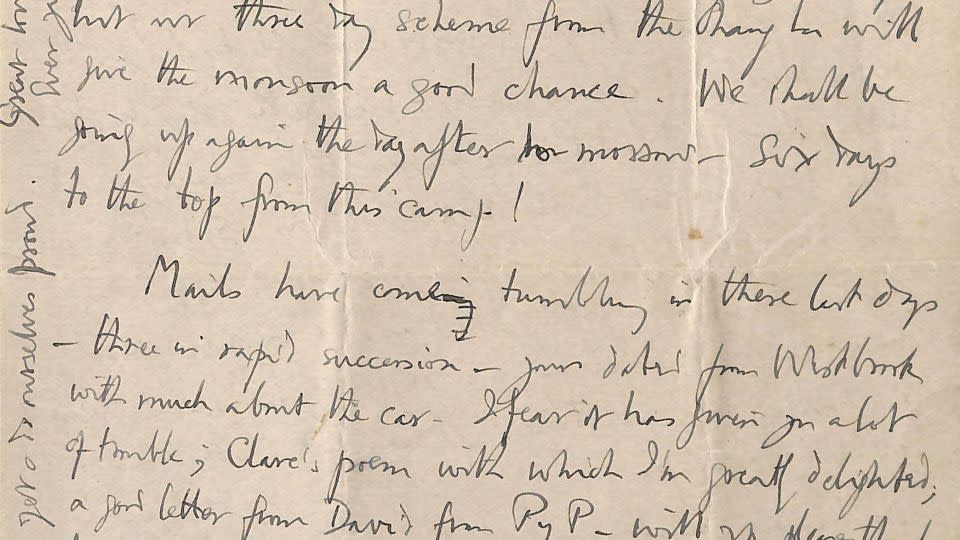 but our three day scheme from the Chang La will
give the monsoon a good chance. We shall be
going up again the day after tomorrow – Six days
to the top from this camp!
Mails have come tumbling in these last days
– three in rapid succession – yours dated from Westbrook
with much about the car – I fear it has given you a lot
of trouble; Clare's poem with which I'm greatly delighted;
a good letter from David from P y P – with
ourselves proud.
Great